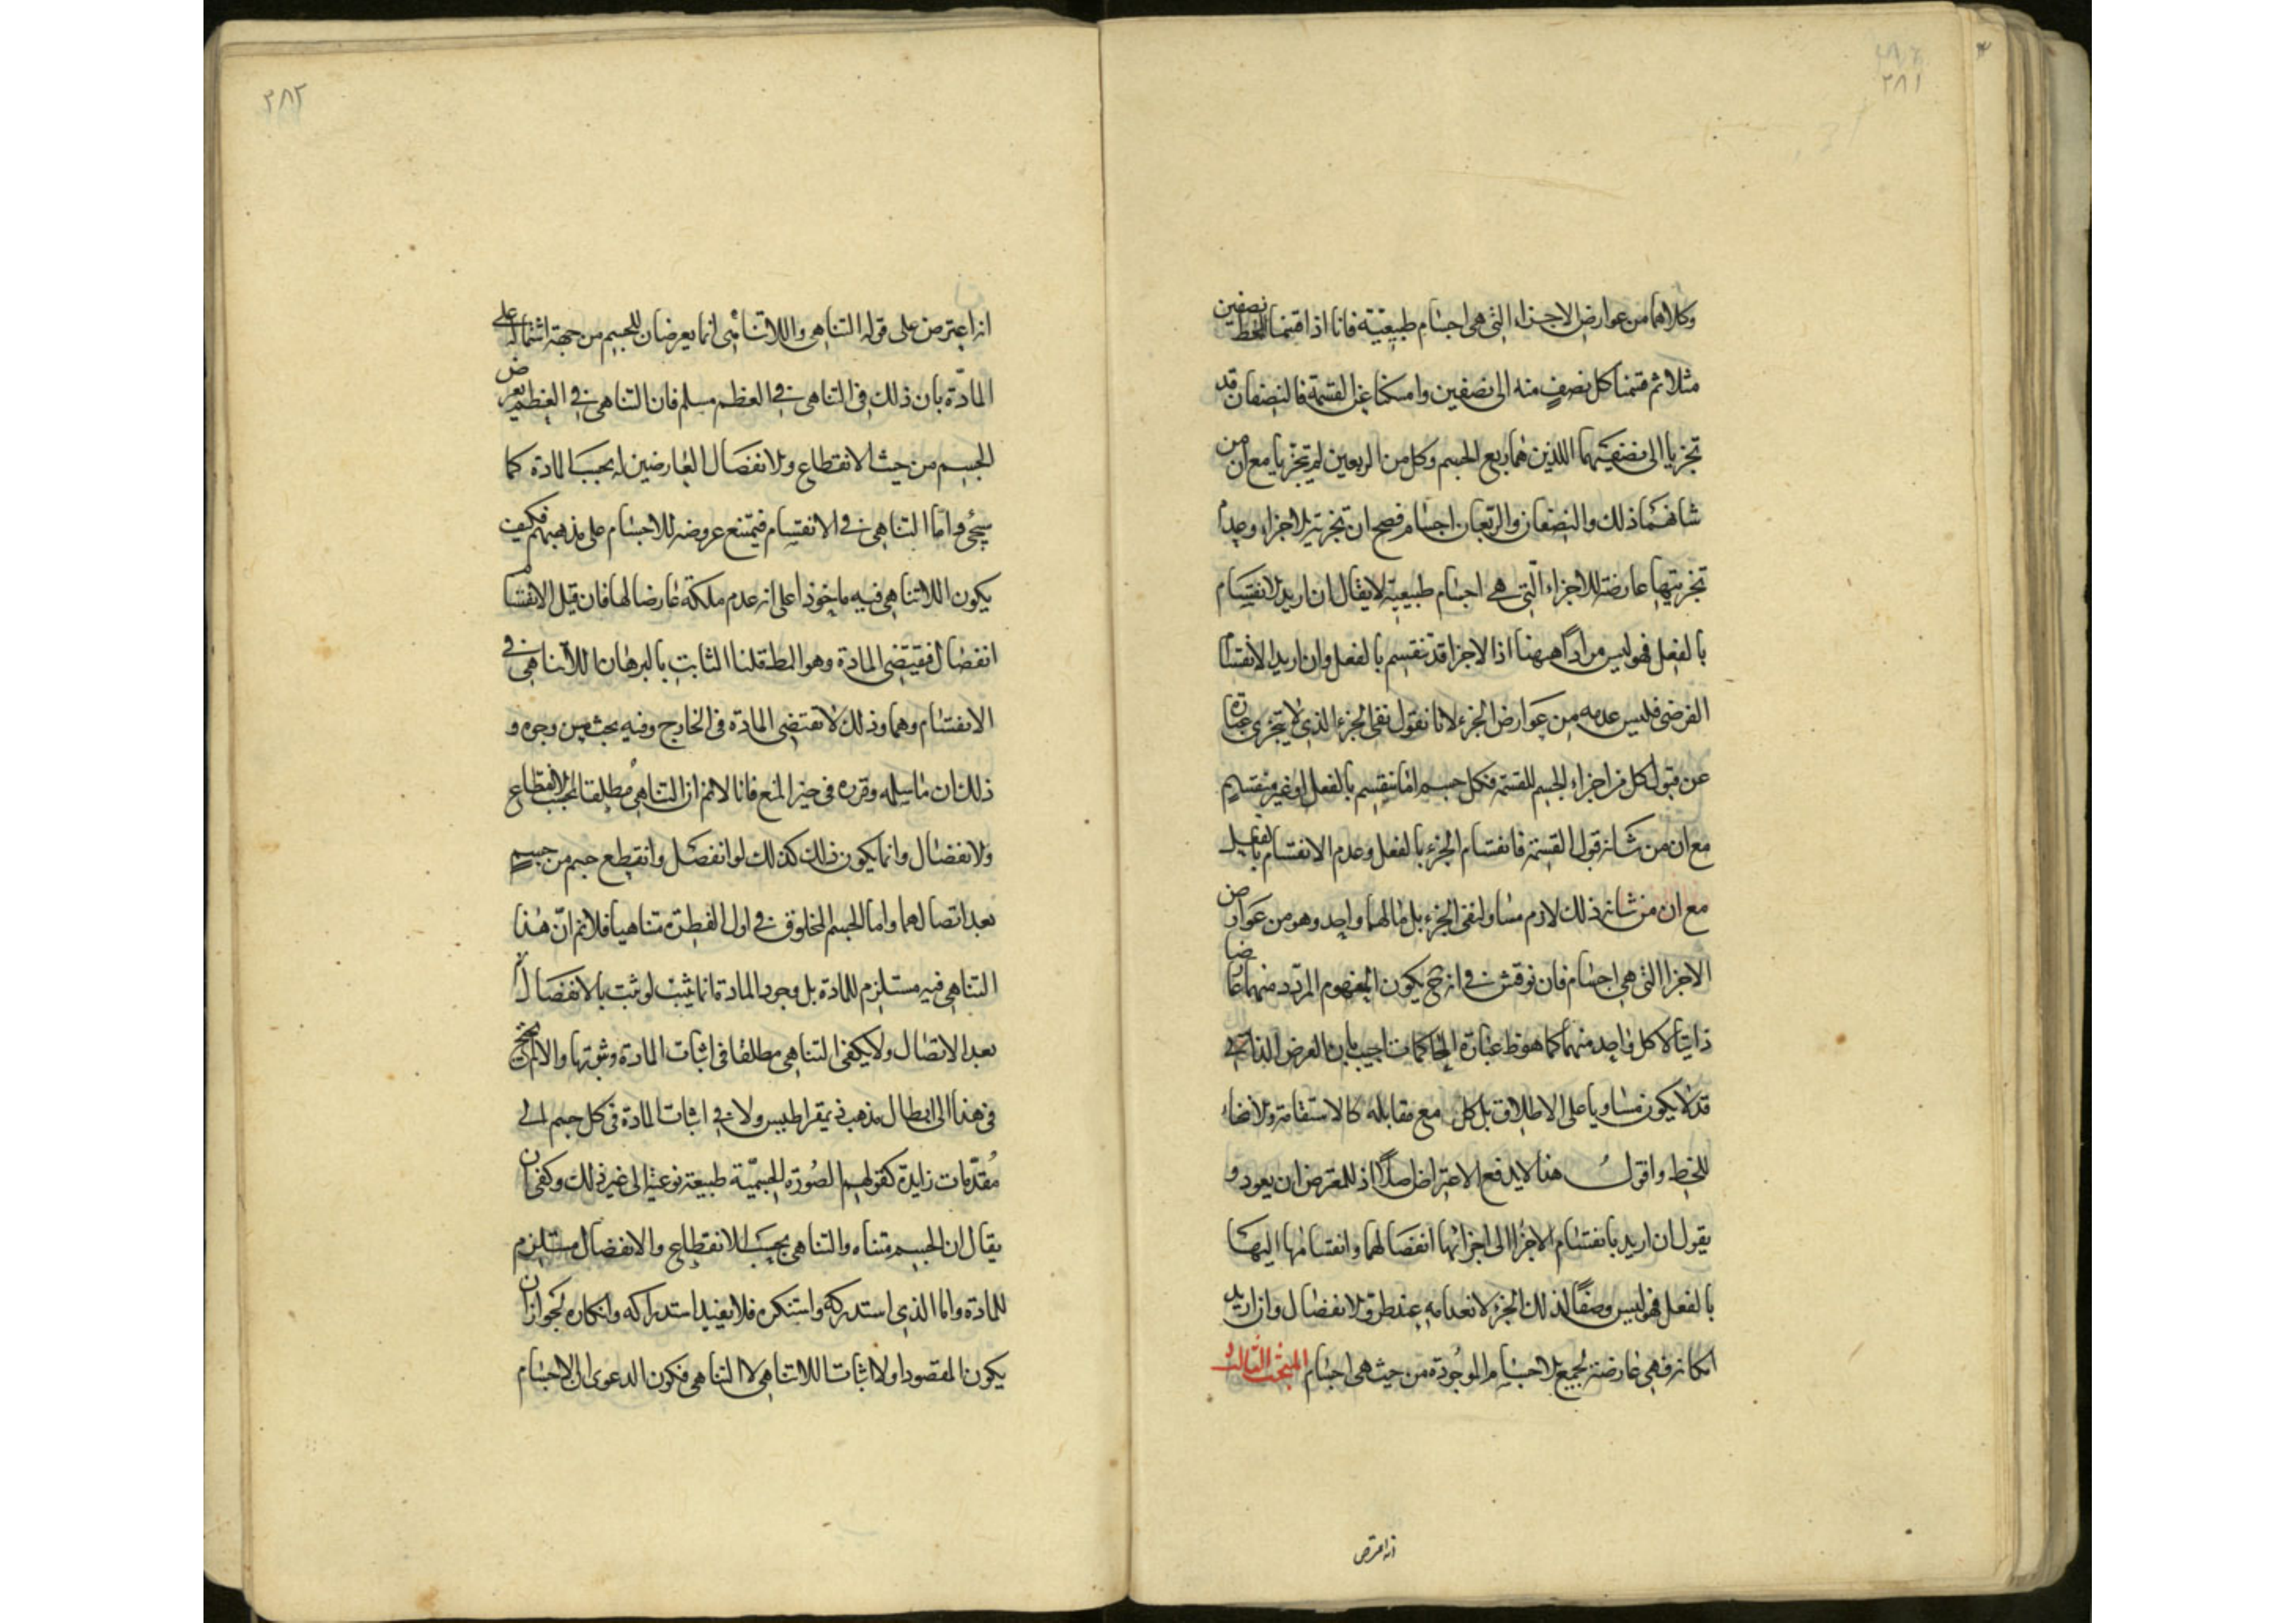 ٢٨١
وكلاهما من عوارض الاجزاء التى هى اجسام طبيعية فانا اذا قسمنا الخط نصفين
مثلا ثم قسمنا كل نصف منه الى نصفين وامسكنا عن القسمة فالنصفان قد
تجزيا الى نصفيهما اللذين هما ربع الجسم وكل من الربعين لم تجزيا مع ان من
شانهما ذلك والنصفان والربعان اجسام فصح ان تجزية الاجزاء وعدم
تجزيتها عارضة للاجزاء التى هى اجسام طبيعية لا يقال ان اريد الانقسام
بالفعل فهو ليس مراداً ههنا اذا الاجزا قد تنقسم بالفعل وان اريد الانقسام
الفرضى فليس عدمه من عوارض الجزء لانا نقول نفى الجزء الذى لا يتجزى عبارة
عن قبول كل من اجزاء الجسم للقسمة فكل جسم اما منقسم بالفعل او غير منقسم
مع ان من شانه قبول القسمة فانقسام الجزء بالفعل وعدم الانقسام بالفعل
مع ان من شانه ذلك لازم مساو لنفى الجزء بل مالهما واحد وهو من عوارض
الاجزا التى هى اجسام فان نوقش فى انه ح يكون المفهوم المردد منهما عارضا
ذاتيا لا كل واحد منهما كما هو ظ عبارة المحاكمات اجيب بان العرض الذاتى
قد لا يكون مساويا على الاطلاق بل كل مع مقابله كالاستقامة والانحناء
للخط واقول هذا لا يدفع الاعتراض اصلاً اذ للمعترض ان يعود و
يقول ان اريد بانقسام الاجزا الى اجزائها انفصالهما وانقسامها اليها
بالفعل فهو ليس وصفاً لذلك الجزء لانعدامه عند طرو الانفصال وان اريد
امكانه فهى عارضة لجميع الاجسام الموجودة من حيث هى اجسام المبحث الثالث
انه اعترض
٢٨٢
انه اعترض على قوله التناهى واللاتناهى انما يعرضان للجسم من جهة اشتماله على
المادة بان ذلك فى التناهى فى العظم مسلم فان التناهى فى العظم يعرض
الجسم من حيث الانقطاع والانفصال العارضين له بحسب المادة كما
سيجئ واما التناهى فى الانقسام فيمتنع عروضه للاجسام على مذهبهم فكيف
يكون اللاتناهى فيه ماخوذا على انه عدم ملكة عارضا لها فان قيل الانقسام
انفصال فيقتضى المادة وهو المط قلنا الثابت بالبرهان اللاتناهى فى
الانقسام وهما وذلك لا يقتضى المادة فى الخارج وفيه بحث من وجوه و
ذلك ان ما سلمه وقرره فى حيز المنع فانا لا نم ان التناهى مطلقا بحسب الانقطاع
والانفصال وانما يكون ذلك كذلك لو انفصل وانقطع جسم من جسم
بعد اتصالهما واما الجسم المخلوق فى اول الفطرة متناهيا فلا نم ان هذا
التناهى فيه مستلزم للمادة بل وجود المادة انما يثبت لو ثبت بالانفصال
بعد الاتصال ولا يكفى التناهى مطلقا فى اثبات المادة وثبوتها والا لم يحتج
فى هذا الى ابطال مذهب ذيمقراطيس ولا فى اثبات المادة فى كل جسم الى
مقدمات زايدة كقولهم الصورة الجسمية طبيعة نوعية الى غير ذلك وكفى ان
يقال ان الجسم متناه والتناهى بحسب الانقطاع والانفصال مستلزم
للمادة واما الذى استدركه واستنكره فلا يفيد استدراكه وانكاره لجواز ان
يكون المقصود اولا اثبات اللاتناهى لا التناهى فكون الدعوى ان الاجسام